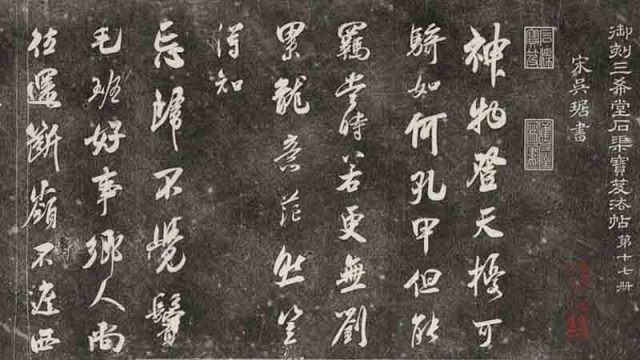 御刻三希堂石渠寶芨法帖第十七册
宋吳琚書
神物登天擾可
騎如何孔甲但能
羈當時若更無劉
累龍意茫然豈
得知
忘歸不覺鬢
毛班好事鄉人尚
往還斷嶺不遮西